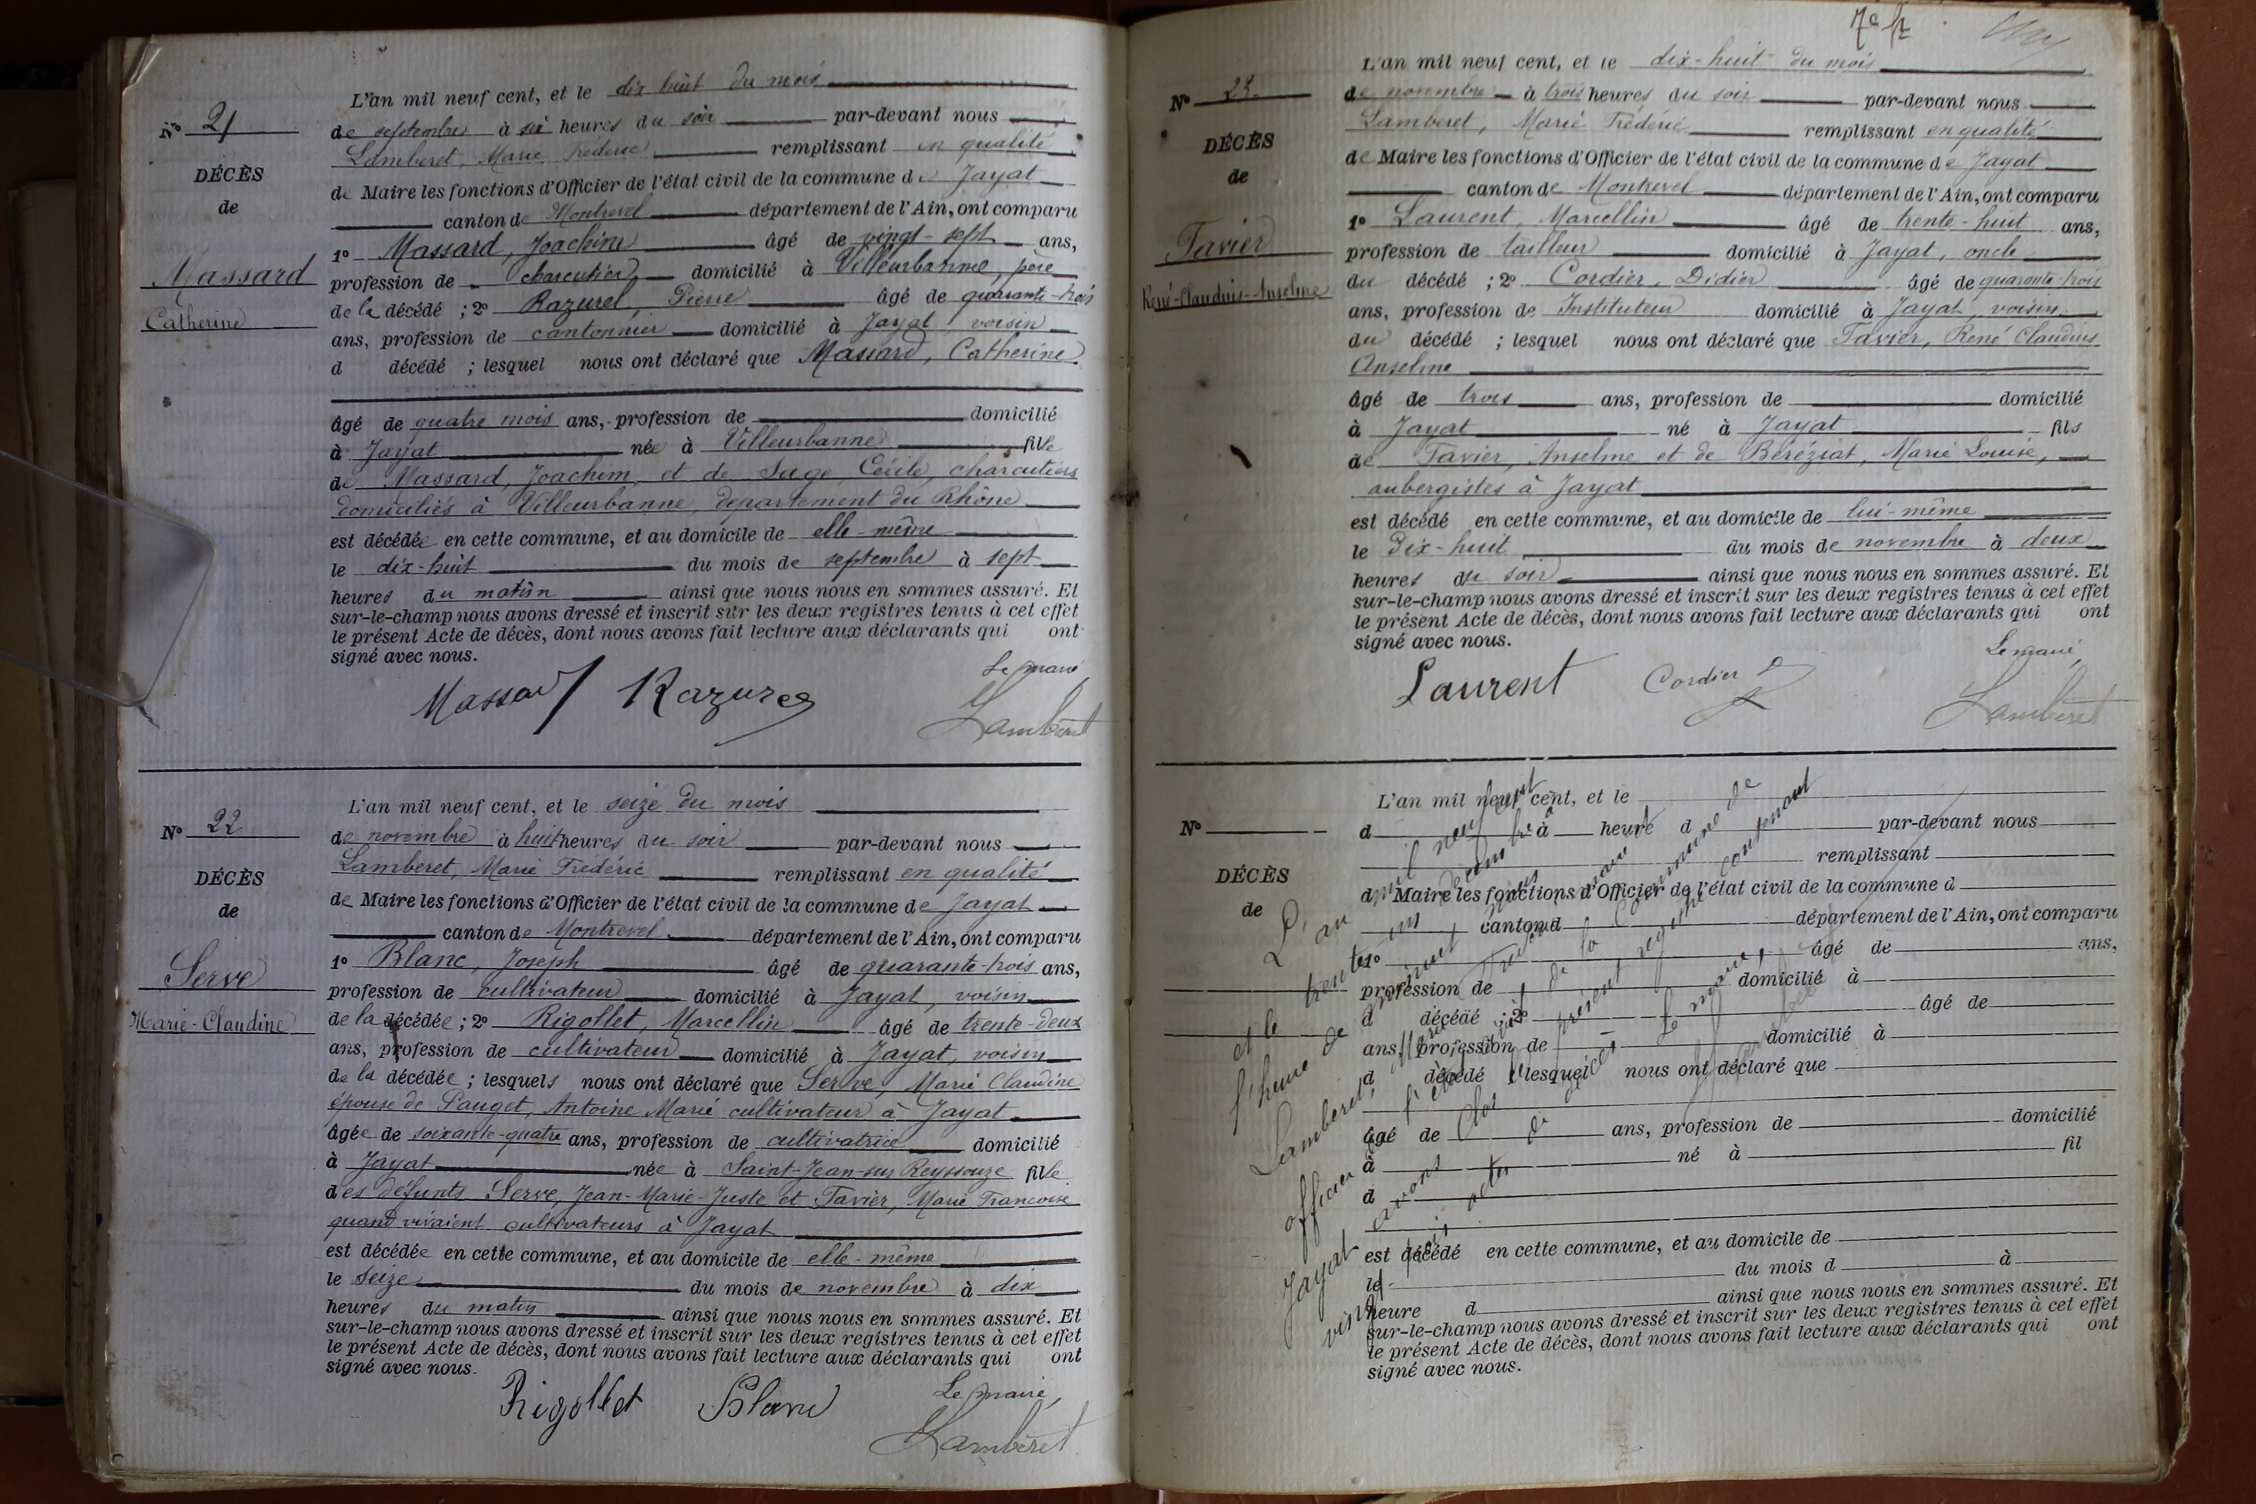 N° 21
DÉCÈS
de
Massard
Catherine
L'an mil neuf cent, et le dix huit du mois
de septembre à six heures du soir par-devant nous
Lamberet, Marie Frédéric remplissant en qualité
de Maire les fonctions d'Officier de l'état civil de la commune de Jayat
canton de Montrevel département de l'Ain, ont comparu
1° Massard, Joachim âgé de vingt-sept ans,
profession de charcutier domicilié à Villeurbanne, père
de la décédé ; 2° Razurel, Pierre âgé de quarante-trois
ans, profession de cantonnier domicilié à Jayat voisin
d décédé ; lesquel nous ont déclaré que Massard, Catherine
âgé de quatre mois ans, profession de domicilié
à Jayat née à Villeurbanne fille
de Massard, Joachim, et de Sage Cécile, charcutiers
domiciliés à Villeurbanne, département du Rhône
est décédée en cette commune, et au domicile de elle-même
le dix-huit du mois de septembre à sept
heures du matin ainsi que nous nous en sommes assuré. Et
sur-le-champ nous avons dressé et inscrit sur les deux registres tenus à cet effet
le présent Acte de décès, dont nous avons fait lecture aux déclarants qui ont
signé avec nous.
Le maire,
Massard Razurel Lamberet
N° 22
DÉCÈS
de
Serve
Marie-Claudine
L'an mil neuf cent, et le seize du mois
de novembre à huit heures du soir par-devant nous
Lamberet, Marie Frédéric remplissant en qualité
de Maire les fonctions d'Officier de l'état civil de la commune de Jayat
canton de Montrevel département de l'Ain, ont comparu
1° Blanc, Joseph âgé de quarante-trois ans,
profession de cultivateur domicilié à Jayat, voisin
de la décédée ; 2° Rigollet, Marcellin âgé de trente-deux
ans, profession de cultivateur domicilié à Jayat, voisin
de la décédée ; lesquels nous ont déclaré que Serve, Marie Claudine
épouse de Pauget, Antoine Marie cultivateur à Jayat
âgée de soixante-quatre ans, profession de cultivatrice domicilié
à Jayat née à Saint-Jean-sur Reyssouze fille
des défunts Serve, Jean-Marie-Juste et Tavier, Marie Francoise
quand vivaient cultivateurs à Jayat
est décédée en cette commune, et au domicile de elle-même
le seize du mois de novembre à dix
heures du matin ainsi que nous nous en sommes assuré. Et
sur-le-champ nous avons dressé et inscrit sur les deux registres tenus à cet effet
le présent Acte de décès, dont nous avons fait lecture aux déclarants qui ont
signé avec nous.
Le maire,
Rigollet Blanc Lamberet
N° 23.
DÉCÈS
de
Tavier
René-Claudius-Anselme
L'an mil neuf cent, et le dix-huit du mois
de novembre à trois heures du soir par-devant nous
Lamberet, Marie Frédéric remplissant en qualité
de Maire les fonctions d'Officier de l'état civil de la commune de Jayat
canton de Montrevel département de l'Ain, ont comparu
1° Laurent, Marcellin âgé de trente-huit ans,
profession de tailleur domicilié à Jayat, oncle
du décédé ; 2° Cordier, Didier âgé de quarante trois
ans, profession de Instituteur domicilié à Jayat, voisin
du décédé ; lesquel nous ont déclaré que Tavier, René Claudius
Anselme
âgé de trois ans, profession de domicilié
à Jayat né à Jayat fils
de Tavier, Anselme et de Béréziat, Marie Louise,
aubergistes à Jayat
est décédé en cette commune, et au domicile de lui-même
le Dix-huit du mois de novembre à deux
heures du soir ainsi que nous nous en sommes assuré. Et
sur-le-champ nous avons dressé et inscrit sur les deux registres tenus à cet effet
le présent Acte de décès, dont nous avons fait lecture aux déclarants qui ont
signé avec nous.
Le maire,
Laurent Cordier D Lamberet
N°
DÉCÈS
de
L'an mil neuf cent, et le
d à heure d par-devant nous
remplissant
d Maire les fonctions d'Officier de l'état civil de la commune d
canton d département de l'Ain, ont comparu
1° âgé de ans,
profession de domicilié à
d décédé ; 2° âgé de
ans, profession de domicilié à
d décédé ; lesquel nous ont déclaré que
âgé de ans, profession de domicilié
à né à fil
d
est décédé en cette commune, et au domicile de
le du mois d à
heure d ainsi que nous nous en sommes assuré. Et
sur-le-champ nous avons dressé et inscrit sur les deux registres tenus à cet effet
le présent Acte de décès, dont nous avons fait lecture aux déclarants qui ont
signé avec nous.
L'an mil neuf cent
et le trente un décembre à
l'heure de minuit nous
Lamberet, Marie Frédéric maire
officier de l'état civil de la commune de
Jayat avons clos le présent registre contenant
vingt trois actes de décès. Le maire,
Lamberet